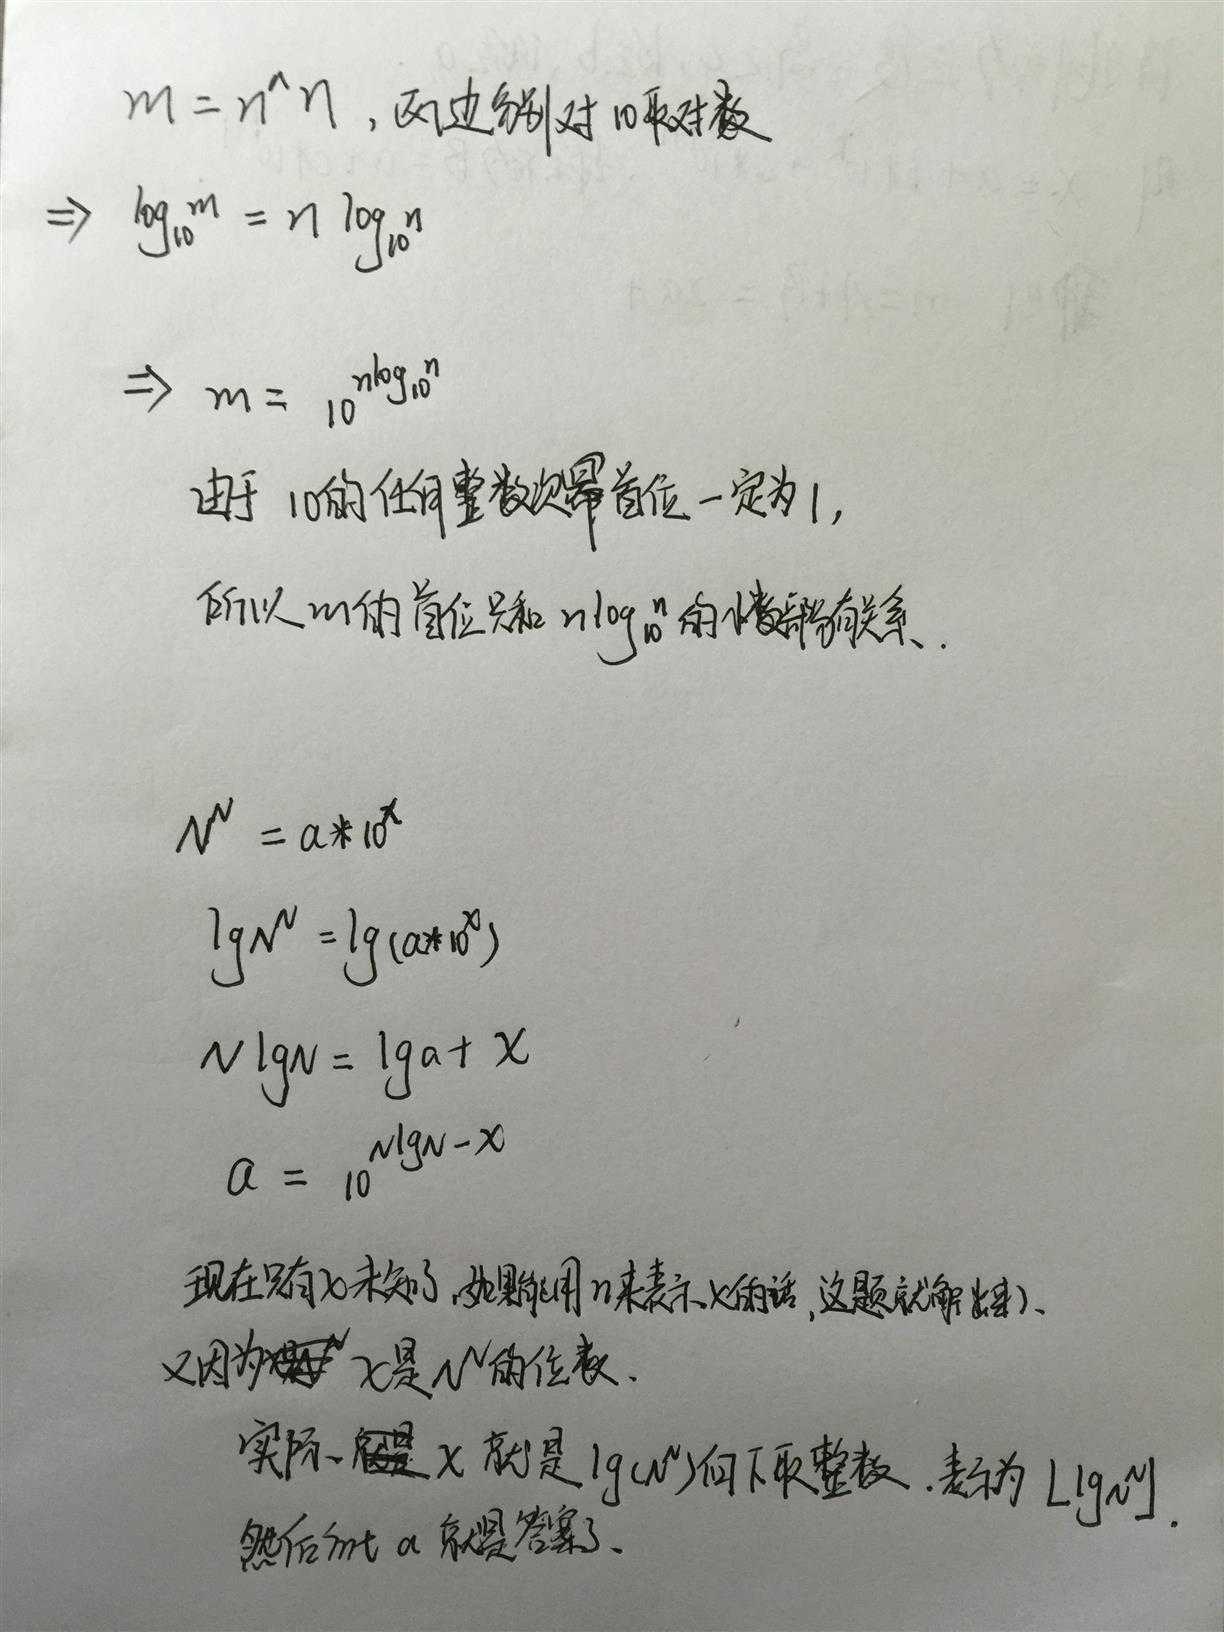 m = n^n, 两边分别对10取对数
⇒ log₁₀m = n log₁₀n
⇒ m = 10^(n log₁₀n)
由于 10的任何整数次幂首位一定为1,
所以m的首位只和 n log₁₀n 的小数部分有关系.
N^N = a*10^x
lgN^N = lg(a*10^x)
N lgN = lga + x
a = 10^(NlgN-x)
现在只有x未知了,如果能用n来表示x的话,这题就解出来了.
又因为 x是N^N的位数.
实际 x 就是 lg(N^N)向下取整数.表示为 ⌊lgN^N⌋.
然后int a 就是答案了.